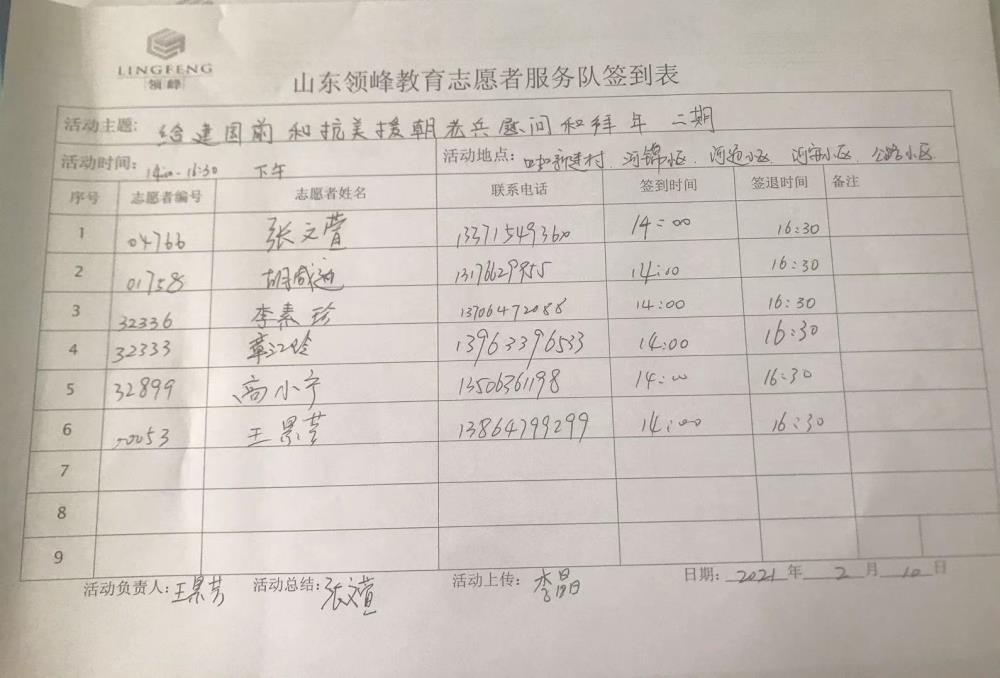 LINGFENG
领峰
山东领峰教育志愿者服务队签到表
活动主题: 给建国前和抗美援朝老兵慰问和拜年 二期
活动时间: 14:00-16:30 下午 活动地点: 新建村、河锦小区、河海小区、河南小区、公路小区
序号 志愿者编号 志愿者姓名 联系电话 签到时间 签退时间 备注
1 04766 张文萱 13371549360 14:00 16:30
2 01758 胡 13176629955 14:10 16:30
3 32336 李素珍 13706472088 14:00 16:30
4 32333 章江玲 13963396533 14:00 16:30
5 32899 高小宁 13506361198 14:00 16:30
6 00053 王景芸 13864799299 14:00 16:30
7
8
9
活动负责人: 王景芸 活动总结: 张文萱 活动上传: 李晶 日期: 2021 年 2 月 10 日